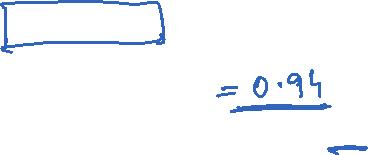 = 0.94